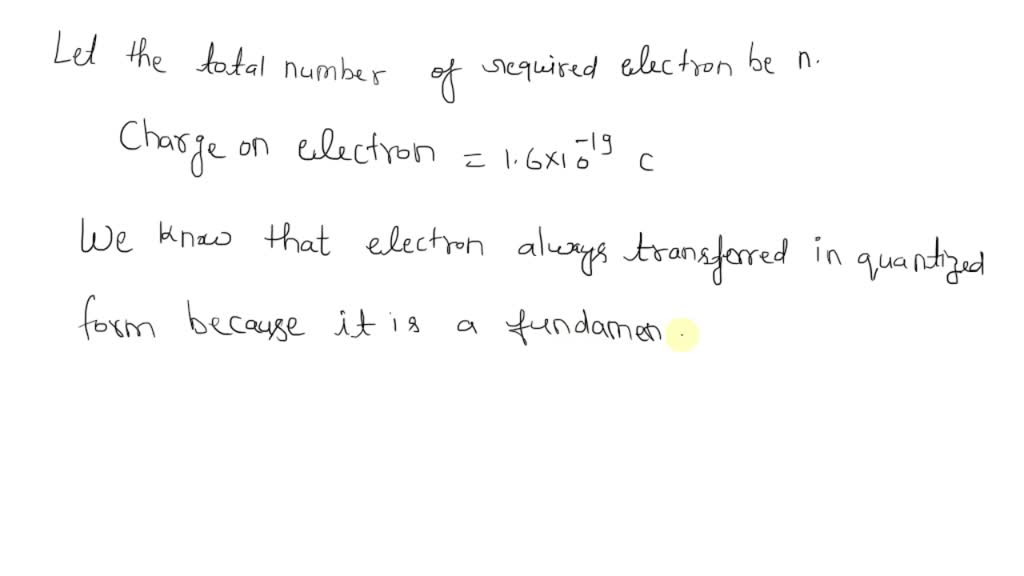 Let the total number of required electron be n.
Charge on electron = 1.6×10⁻¹⁹ C
We know that electron always transferred in quantized
form because it is a fundamen